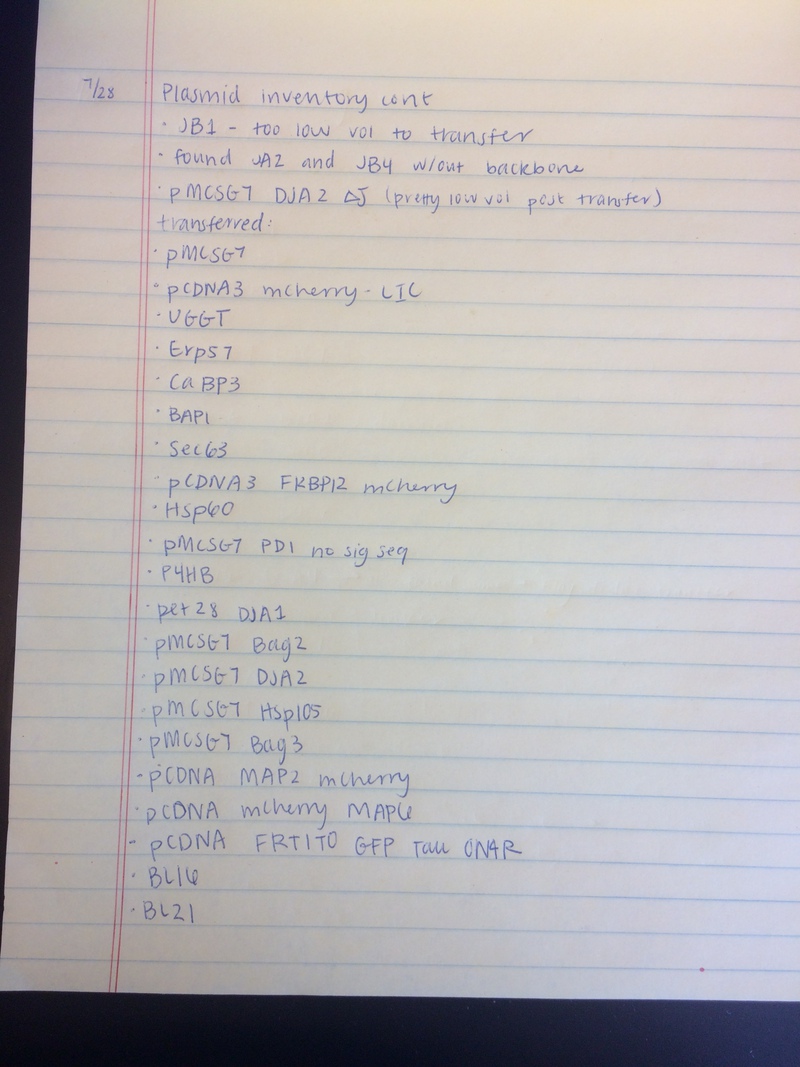 7/28 Plasmid inventory cont
· JB1 - too low vol to transfer
· found JA2 and JB4 w/out backbone
· pMCSG7 DJA2 ΔJ (pretty low vol post transfer)
transferred:
· pMCSG7
· pCDNA3 mcherry - LIC
· UGGT
· Erp57
· CaBP3
· BAP1
· Sec63
· pCDNA3 FKBP12 mcherry
· Hsp60
· pMCSG7 PDI no sig seq
· P4HB
· pet28 DJA1
· pMCSG7 Bag2
· pMCSG7 DJA2
· pMCSG7 Hsp105
· pMCSG7 Bag3
· pCDNA MAP2 mcherry
· pCDNA mcherry MAP6
· pCDNA FRTITO GFP Tau 0N4R
· BL16
· BL21